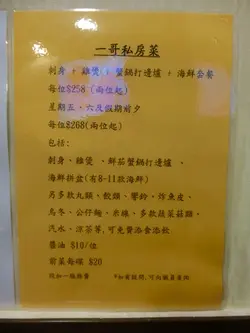 一哥私房菜
刺身，雞煲，蟹鍋打邊爐，海鮮套餐
每位$258 (兩位起)
星期五、六及假期前夕
每位$268(兩位起)
包括:
刺身、雞煲、鮮茄蟹鍋打邊爐、
海鮮拼盆(有8-11款海鮮)
另多款丸類、餃類、響鈴、炸魚皮、
烏冬、公仔麵、米線、多款蔬菜菇類、
汽水、涼茶等,可免費添食添飲
醬油 $10/位
前菜每碟 $20
另加一服務費
*如有疑問,可向職員查詢